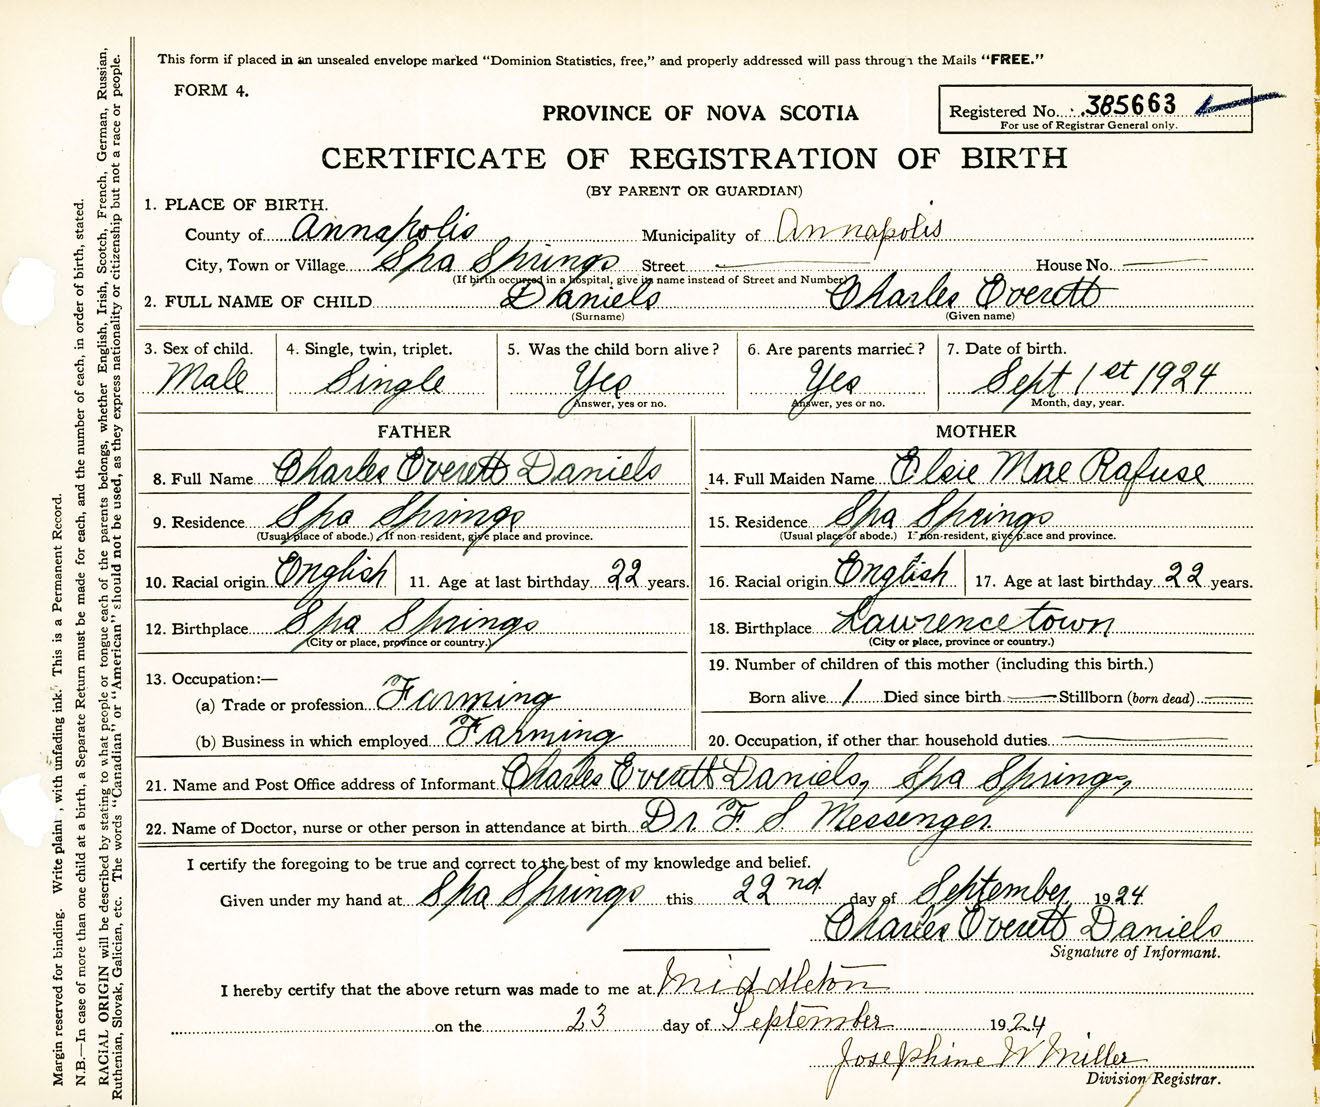 This form if placed in an unsealed envelope marked "Dominion Statistics, free," and properly addressed will pass through the Mails "FREE."
FORM 4.
PROVINCE OF NOVA SCOTIA
Registered No. 385663
For use of Registrar General only.
CERTIFICATE OF REGISTRATION OF BIRTH
(BY PARENT OR GUARDIAN)
1. PLACE OF BIRTH.
County of Annapolis Municipality of Annapolis
City, Town or Village Spa Springs Street House No.
(If birth occurred in a hospital, give its name instead of Street and Number)
2. FULL NAME OF CHILD Daniels Charles Everett
(Surname) (Given name)
3. Sex of child. 4. Single, twin, triplet. 5. Was the child born alive? 6. Are parents married? 7. Date of birth.
Male Single Yes Yes Sept 1st 1924
Answer, yes or no. Answer, yes or no. Month, day, year.
FATHER MOTHER
8. Full Name Charles Everett Daniels 14. Full Maiden Name Elsie Mae Rafuse
9. Residence Spa Springs 15. Residence Spa Springs
(Usual place of abode.) If non-resident, give place and province. (Usual place of abode.) If non-resident, give place and province.
10. Racial origin English 11. Age at last birthday 22 years. 16. Racial origin English 17. Age at last birthday 22 years.
12. Birthplace Spa Springs 18. Birthplace Lawrencetown
(City or place, province or country.) (City or place, province or country.)
13. Occupation:— 19. Number of children of this mother (including this birth.)
(a) Trade or profession Farming Born alive 1 Died since birth Stillborn (born dead)
(b) Business in which employed Farming 20. Occupation, if other than household duties.
21. Name and Post Office address of Informant Charles Everett Daniels, Spa Springs,
22. Name of Doctor, nurse or other person in attendance at birth Dr. F. S. Messenger.
I certify the foregoing to be true and correct to the best of my knowledge and belief.
Given under my hand at Spa Springs this 22nd. day of September 1924
Charles Everett Daniels
Signature of Informant.
I hereby certify that the above return was made to me at Middleton
on the 23 day of September 1924
Josephine W Miller
Division Registrar.
Margin reserved for binding. Write plainl , with unfading ink. This is a Permanent Record.
N.B.—In case of more than one child at a birth, a Separate Return must be made for each, and the number of each, in order of birth, stated.
RACIAL ORIGIN will be described by stating to what people or tongue each of the parents belongs, whether English, Irish, Scotch, French, German, Russian,
Ruthenian, Slovak, Galician, etc. The words "Canadian" or "American" should not be used, as they express nationality or citizenship but not a race or people.